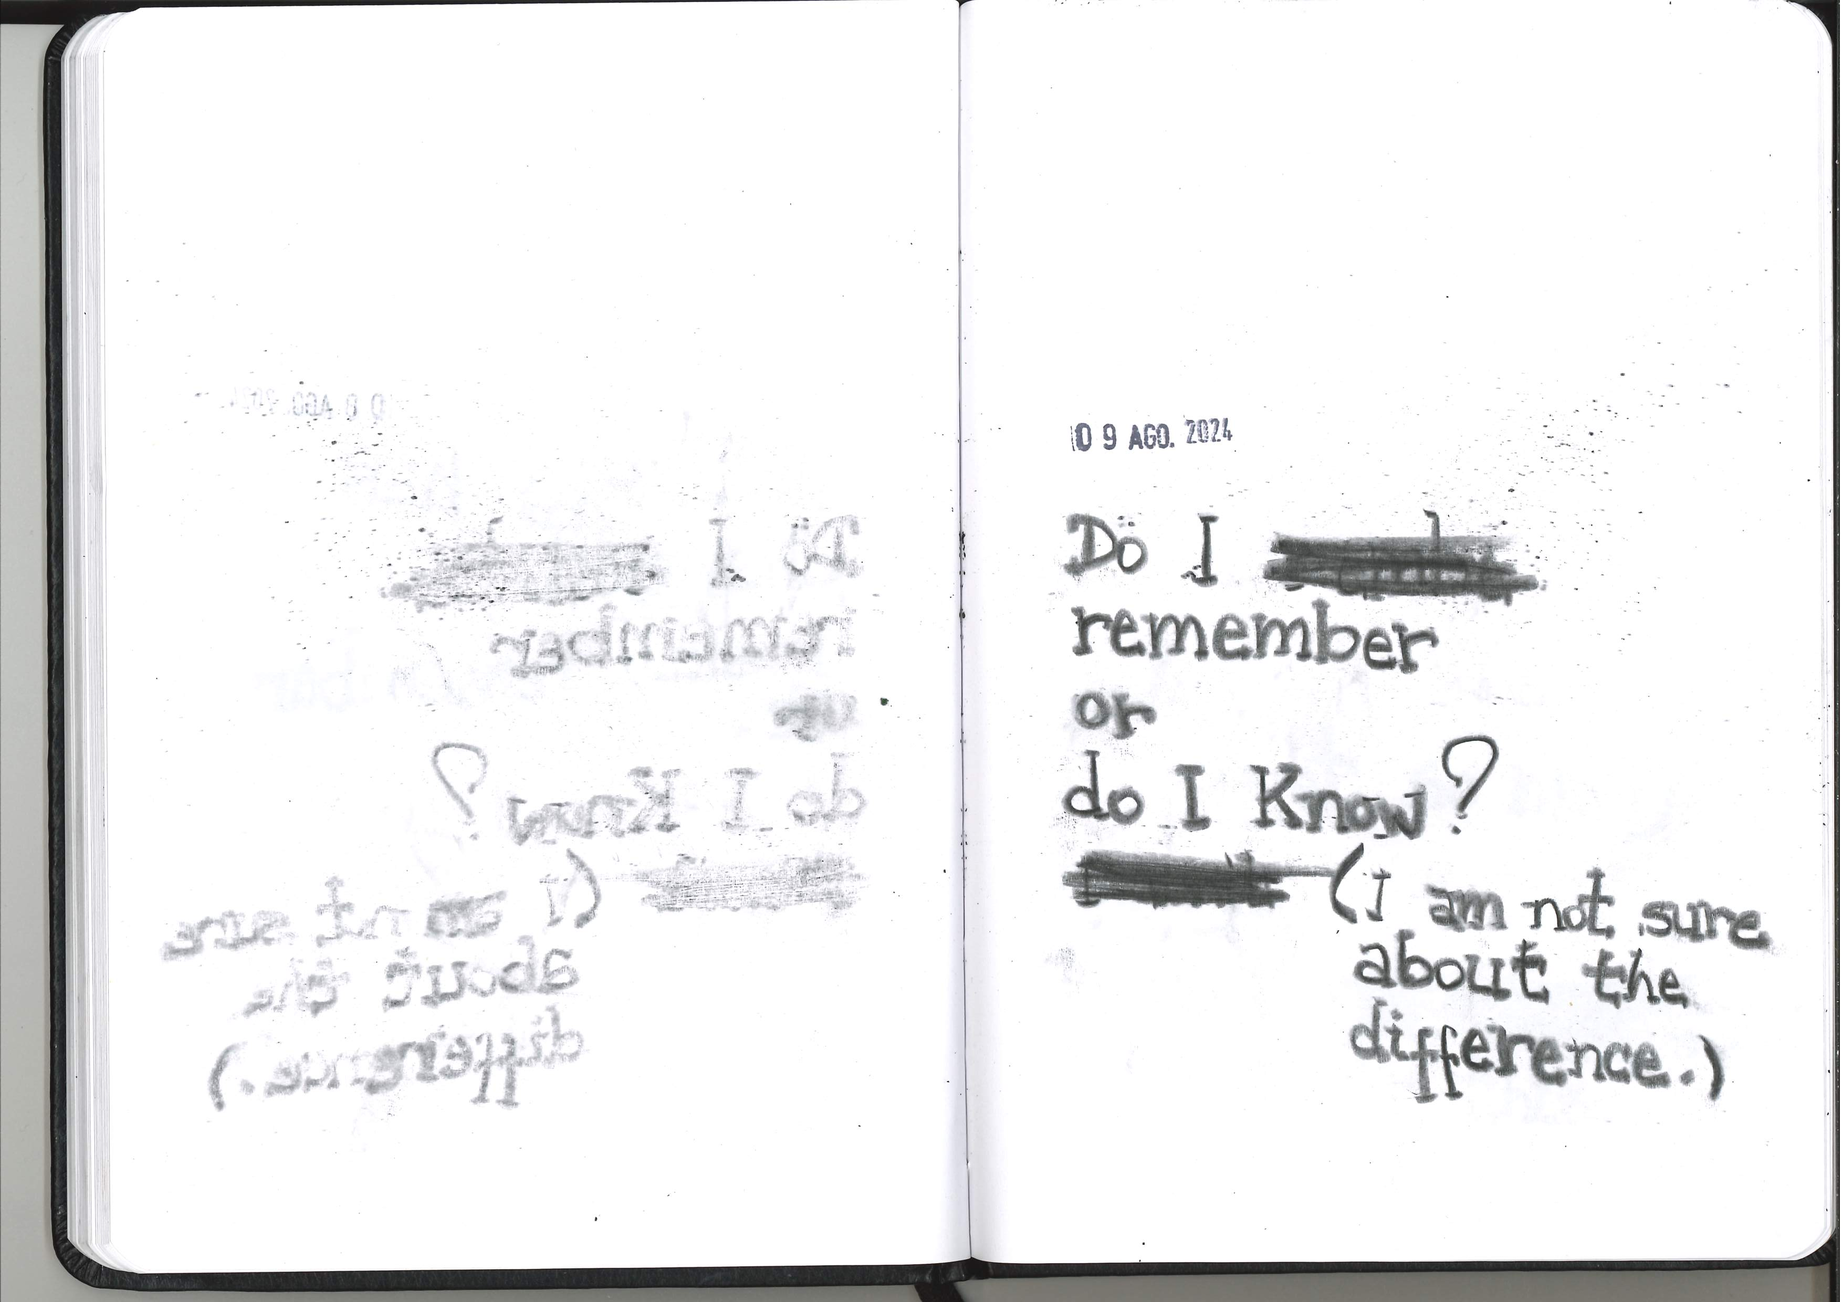 09 AGO. 2024
Do I
remember
or
do I Know?
(I am not sure
about the
difference.)